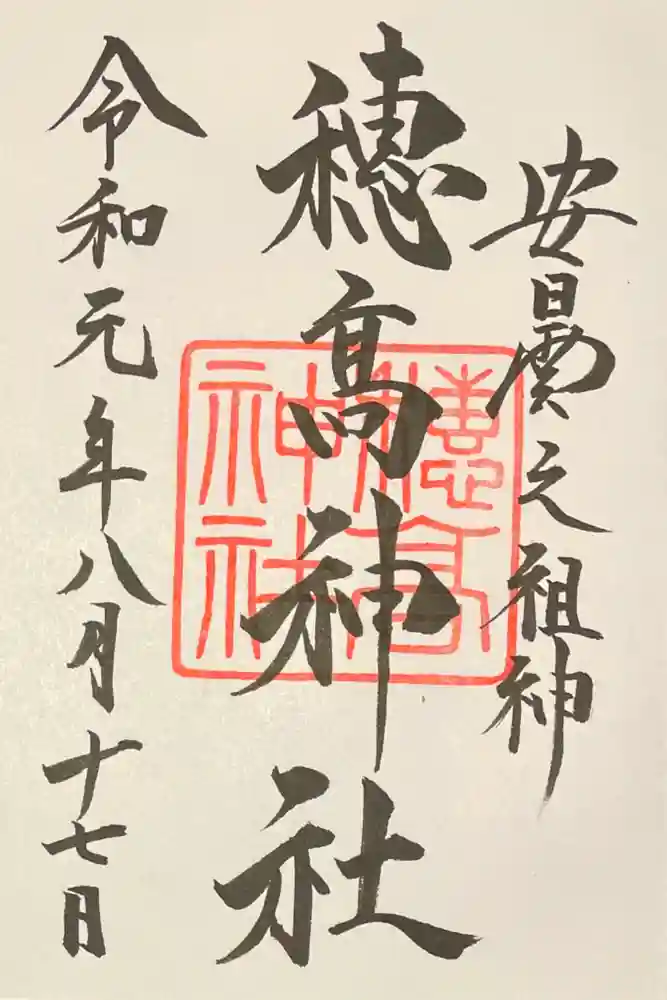 安曇之祖神
穂高神社
穂高神社
令和元年八月十七日